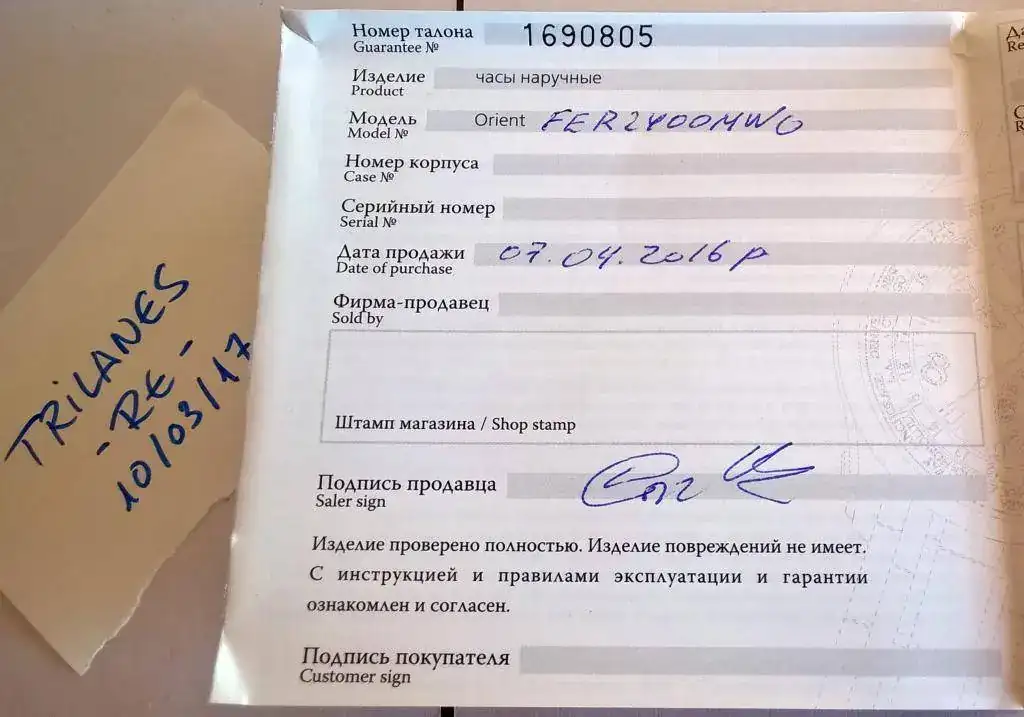 TRiLANES
-RE-
10/03/17
Номер талона 1690805
Guarantee №
Изделие часы наручные
Product
Модель Orient FER2400MW0
Model №
Номер корпуса
Case №
Серийный номер
Serial №
Дата продажи 07.04.2016р
Date of purchase
Фирма-продавец
Sold by
Штамп магазина / Shop stamp
Подпись продавца
Saler sign
Изделие проверено полностью. Изделие повреждений не имеет.
С инструкцией и правилами эксплуатации и гарантии
ознакомлен и согласен.
Подпись покупателя
Customer sign